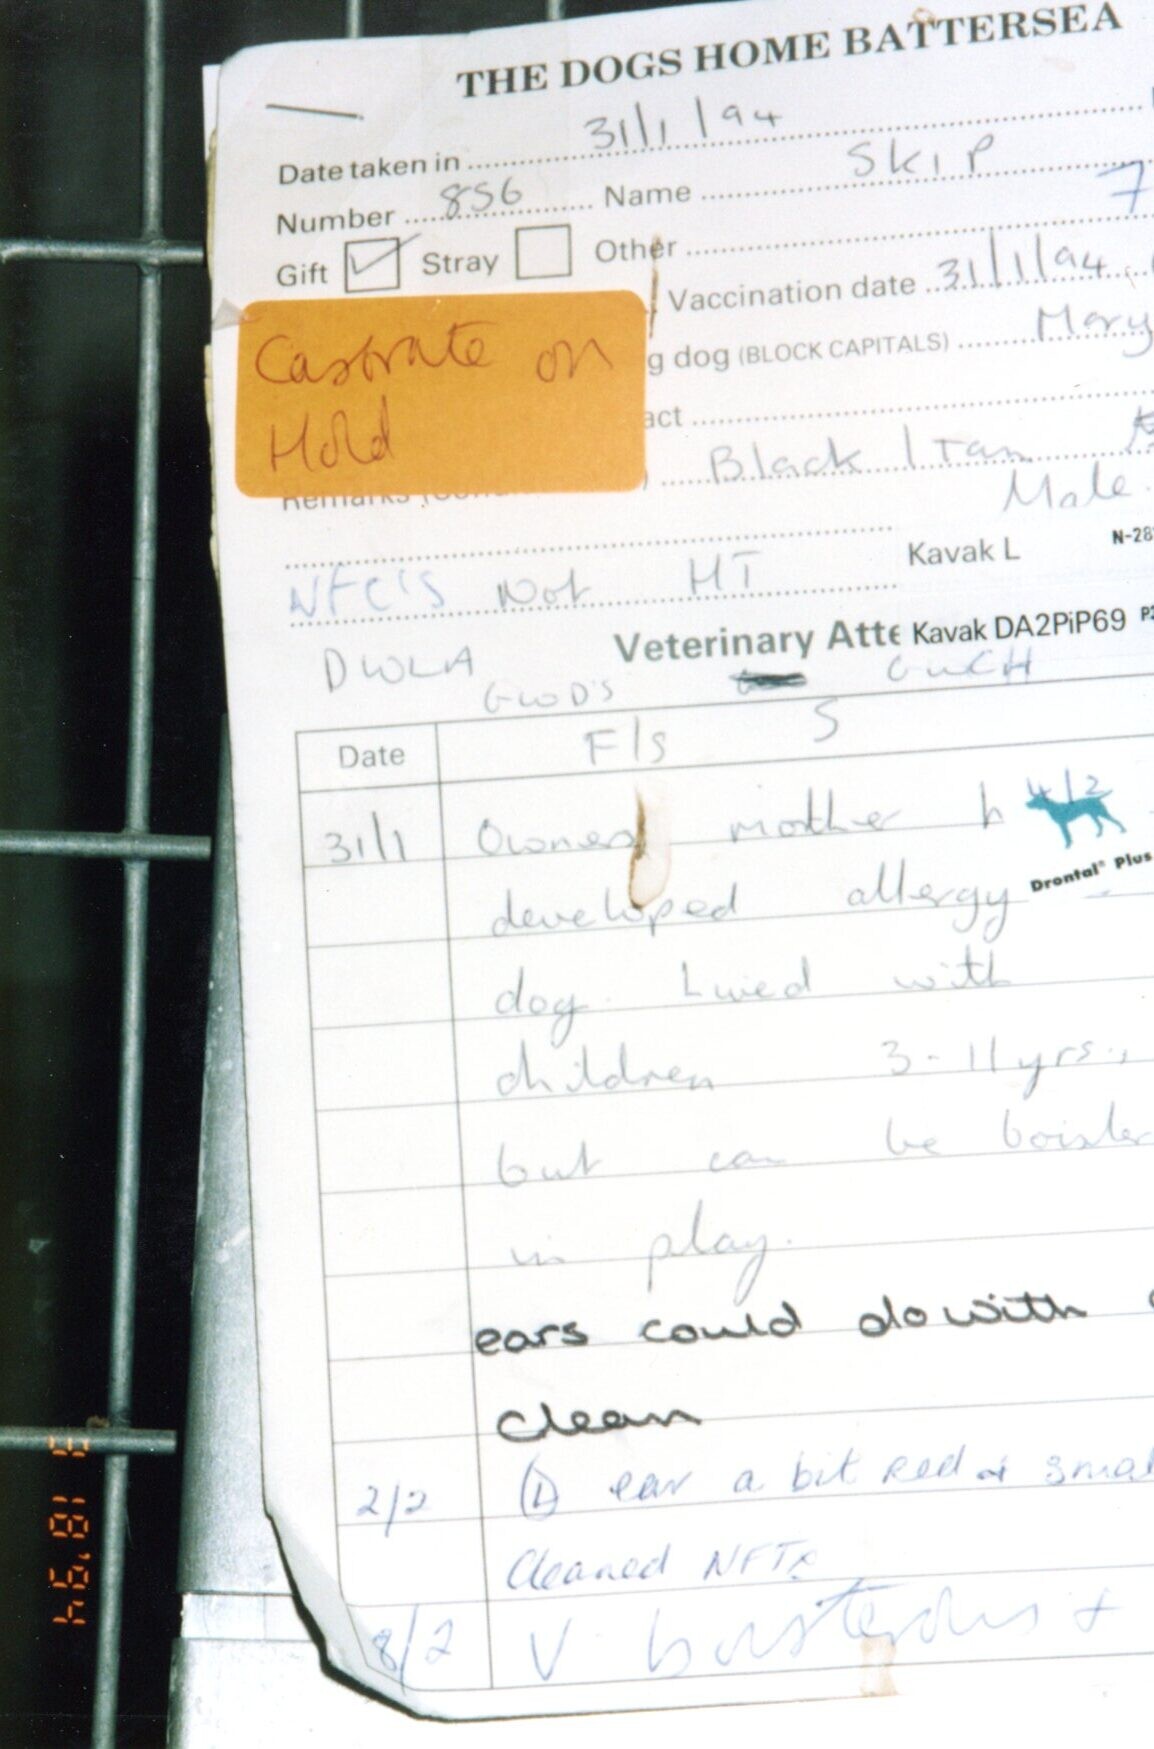 THE DOGS HOME BATTERSEA
Date taken in 31/1/94
Number 856 Name SKIP
7
Gift Stray Other
Vaccination date 31/1/94
Castrate on
Hold
g dog (BLOCK CAPITALS) Mary
act
Black / Tan
Remarks
Male.
Kavak L N-28
NFC'S Not HT
Veterinary Atte Kavak DA2PiP69
DWLA
GWD'S GWCH
Date F/S S
31/1 Owner mother h
4/2
Drontal® Plus
developed allergy
dog. Lived with
children 3-11yrs.,
but can be boister
in play.
ears could do with
clean
2/2 (L) ear a bit red & smal
Cleaned NFTx
8/2 V boisterous +
3 18'94